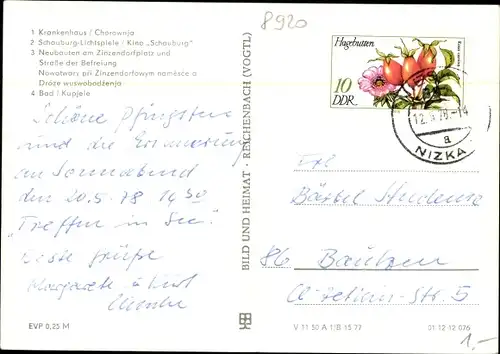 1 Krankenhaus / Chorownja
2 Schauburg-Lichtspiele / Kino „Schauburg"
3 Neubauten am Zinzendorfplatz und
Straße der Befreiung
Nowotwary při Zinzendorfowym naměsće a
Dróze wuswobodźenja
4 Bad / Kupjele
8920
Hagebutten
10
DDR
a
NIZKA
Schöne Pfingsten
und die Erinnerung
am Sonnabend
den 20.5.78 14 30
„Treffen in See"
Beste Grüße
Margarete u. Kurt
BILD UND HEIMAT · REICHENBACH (VOGTL)
Frl.
Bärbel
86 Bautzen
-Str. 5
EVP 0,25 M
V 11 50 A 1/B 15 77
01 12 12 076
1,-